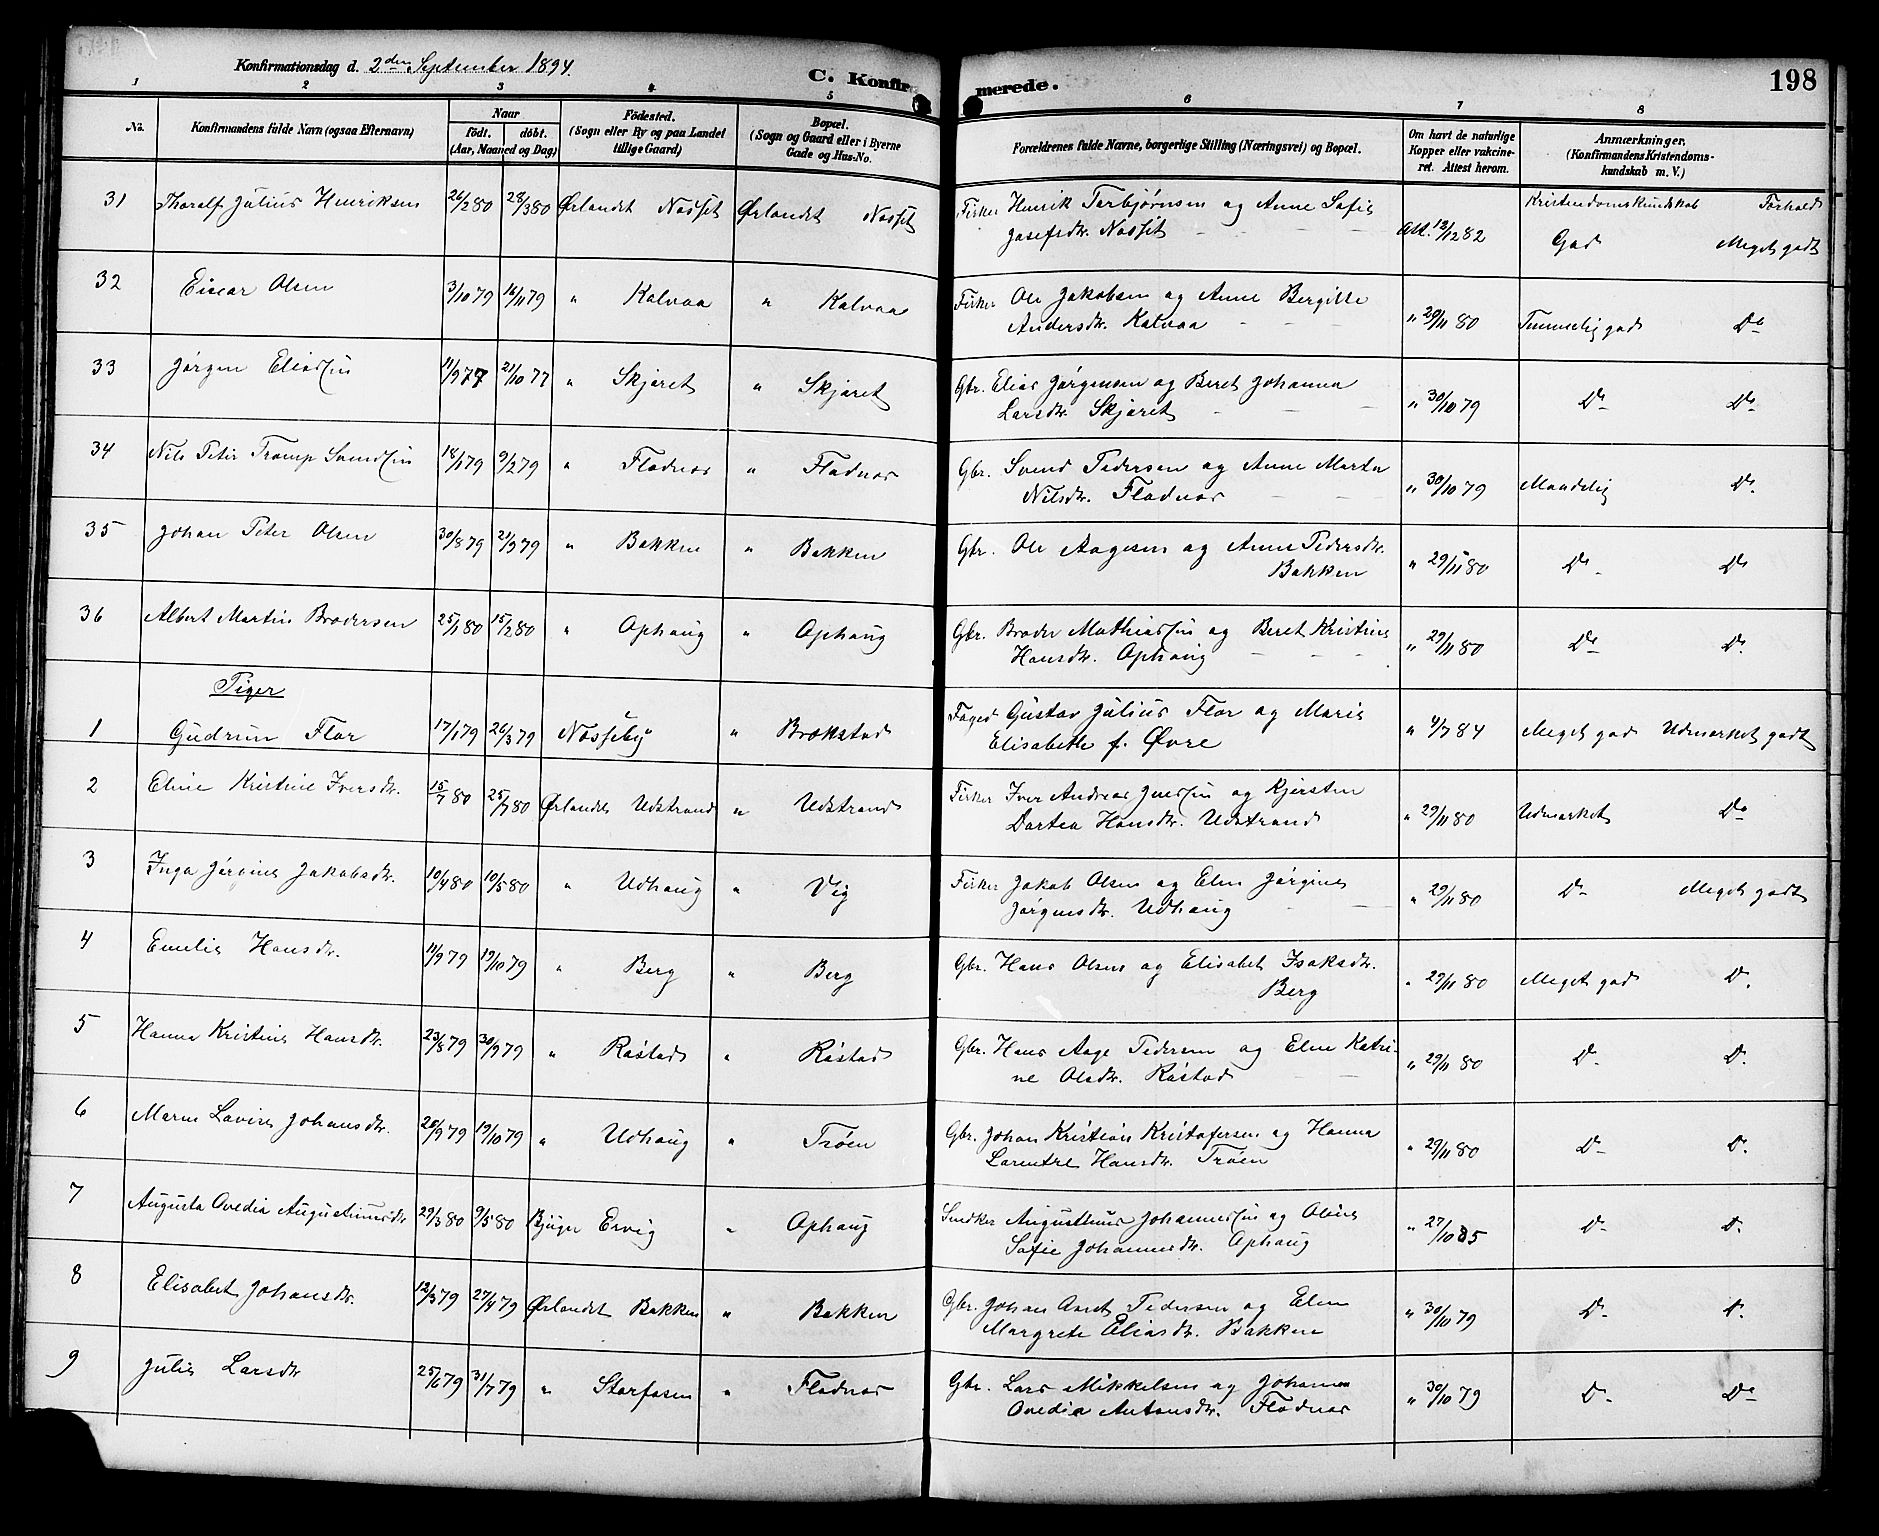 Konfirmationsdag d. 2den September 1894.
C. Konfirmerede.
198
1 2 3 4 5 6 7 8
No. Konfirmandens fulde Navn (ogsaa Efternavn) Naar født. døbt. (Aar, Maaned og Dag) Fødested. (Sogn eller By og paa Landet tillige Gaard) Bopæl. (Sogn og Gaard eller i Byerne Gade og Hus-No. Forældrenes fulde Navne, borgerlige Stilling (Næringsvei) og Bopæl. Om havt de naturlige Kopper eller vakcineret. Attest herom. Anmærkninger. (Konfirmandens Kristendomskundskab m. V.)
Kristendomskundskab Forhold
31 Tharalf Julius Henriksen 26/2 80 28/3 80 Ørlandet Næsset Ørlandet Næsset Fisker Henrik Torbjørnsen og Anne Sofie
Josefsdtr. Næsset Att. 12/12 82 God Meget godt
32 Einar Olsen 3/10 79 16/11 79 " Kalvaa " Kalvaa Fisker Ole Jakobsen og Anne Bergitte
Andersdtr. Kalvaa " 29/11 80 Temmelig god Do
33 Jørgen Eliassen 11/9 77 21/10 77 " Skjæret " Skjæret Gbr. Elias Jørgensen og Beret Johanna
Larsdtr. Skjæret " 30/10 79 Do Do
34 Nils Peter Tramp Svendsen 18/1 79 9/2 79 " Fladnæs " Fladnæs Gbr. Svend Pedersen og Anne Marta
Nilsdtr. Fladnæs " 30/10 79 Maadelig Do
35 Johan Peter Olsen 30/8 79 21/9 79 " Bakken " Bakken Gbr. Ole Aagesen og Anne Pedersdtr.
Bakken " 29/11 80 Do Do
36 Albert Martin Brodersen 25/1 80 15/2 80 " Ophaug " Ophaug Gbr. Broder Mathiassen og Beret Kristine
Hansdtr. Ophaug " 29/11 80 Do Do
Piger
1 Gudrun Flor 17/1 79 26/3 79 Næsseby " Brækstad Foged Gustav Julius Flor og Marie
Elisabeth f. Øvre " 4/7 84 Meget god Udmærket godt
2 Eline Kristine Iversdtr. 15/7 80 25/7 80 Ørlandet Udstrand " Udstrand Fisker Iver Andreas Iversen og Kjersten
Dortea Hansdtr. Udstrand " 29/11 80 Udmærket Do
3 Inga Jørgine Jakobsdtr. 10/4 80 10/5 80 " Udhaug " Vig Fisker Jakob Olsen og Elen Jørgine
Jørgensdtr. Udhaug " 29/11 80 Do Meget godt
4 Emelie Hansdtr. 11/9 79 19/10 79 " Berg " Berg Gbr. Hans Olsen og Elisabet Isaksdtr.
Berg " 29/11 80 Meget god Do
5 Hanna Kristine Hansdtr. 23/8 79 30/9 79 " Røstad " Røstad Gbr. Hans Aage Pedersen og Elen Katri-
ne Olsdtr. Røstad " 29/11 80 Do Do
6 Maren Lovise Johansdtr. 20/9 79 19/10 79 " Udhaug " Trøen Gbr. Johan Kristian Kristofersen og Hanna
Larentse Hansdtr. Trøen " 29/11 80 Do Do
7 Augusta Ovedia Augustinusdtr. 29/3 80 9/5 80 Bjugn Ervig " Ophaug Snedker Augustinus Johannessen og Oline
Sofie Johannesdtr. Ophaug " 27/10 85 Do Do
8 Elisabet Johansdtr. 12/3 79 27/4 79 Ørlandet Bakken " Bakken Gbr. Johan Pedersen og Elen
Margrete Eliasdtr. Bakken " 30/10 79 Do Do
9 Julie Larsdtr. 25/6 79 31/7 79 " Storfosen " Fladnæs Gbr. Lars Mikkelsen og Johanna
Ovedia Antonsdtr. Fladnæs " 30/10 79 Do Do